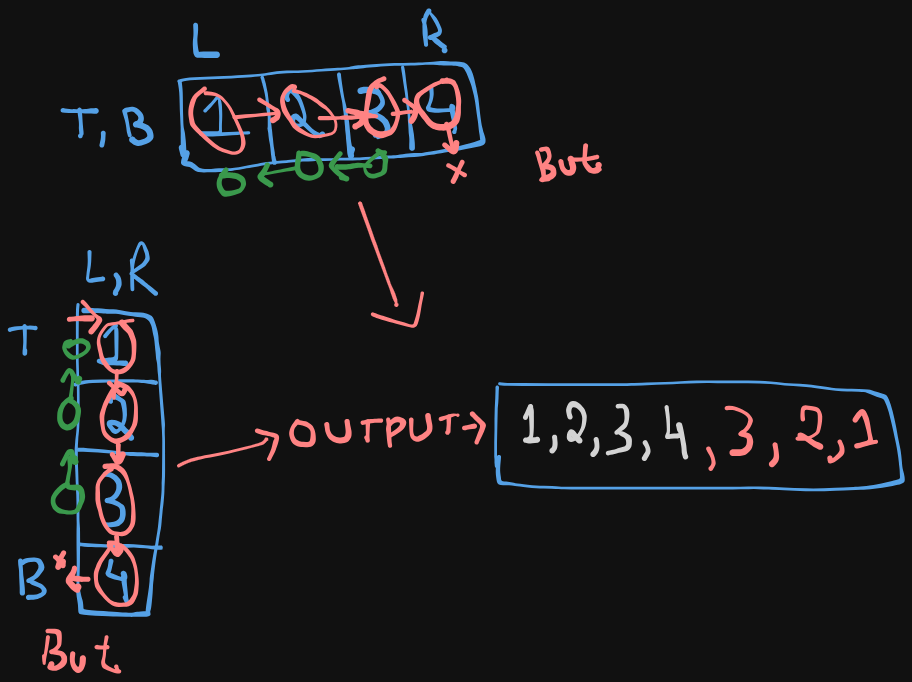 L R
T, B 1 2 3 4
x But
L, R
T 1
2
3
B x 4
But
OUTPUT 1, 2, 3, 4, 3, 2, 1